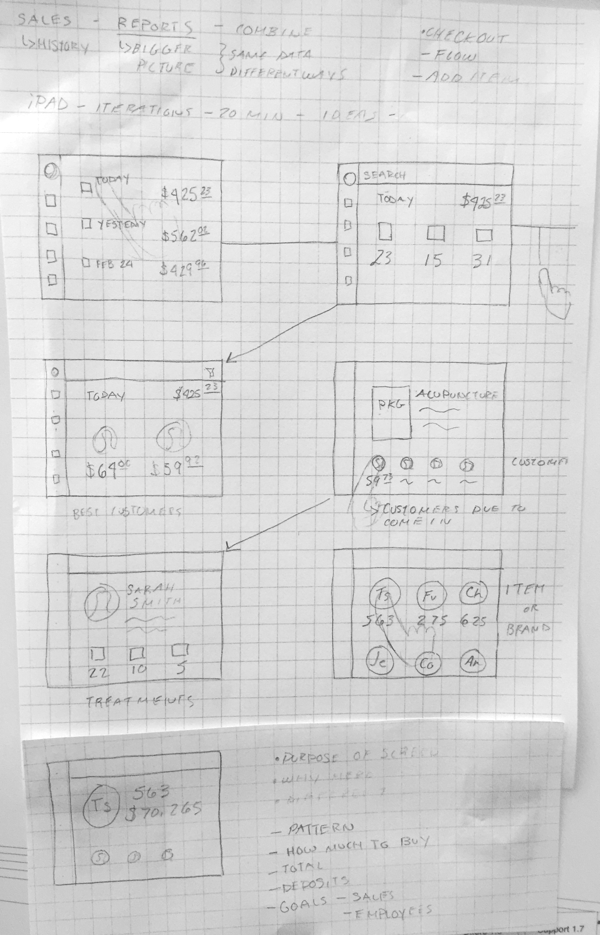 SALES - REPORTS - COMBINE
↳HISTORY ↳BIGGER PICTURE } SAME DATA DIFFERENT WAYS
• CHECKOUT
- FLOW
- ADD ITEM
iPAD - ITERATIONS - 20 MIN - IDEAS -
TODAY $425 23
YESTERDY $562 01
FEB 24 $419 96
SEARCH
TODAY $425 23
23 15 31
TODAY $425 23
$64 00 $59 93
BEST CUSTOMERS
PKG ACUPUNCTURE
CUSTOMER
59 73
↳CUSTOMERS DUE TO
COME IN
SARAH
SMITH
22 10 5
TREATMENTS
Ts Fu Ch
563 275 625
Je Co An
ITEM
OR
BRAND
Ts 563
$70,265
• PURPOSE OF SCREEN
• WHY HERE
- PATTERN
- HOW MUCH TO BUY
- TOTAL
- DEPOSITS
- GOALS - SALES
- EMPLOYEES
Support 1.7